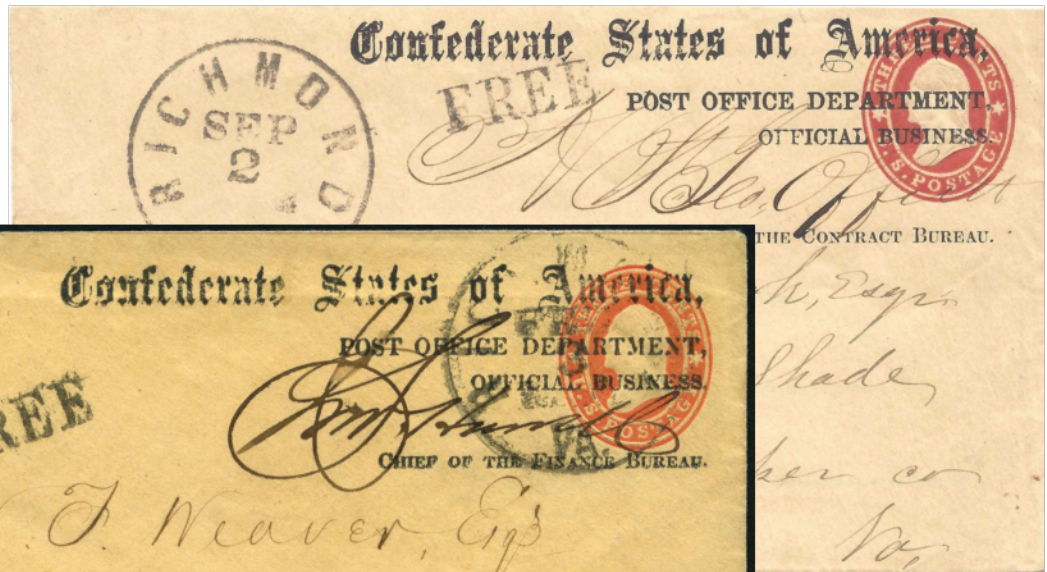 Confederate States of America,
FREE
POST OFFICE DEPARTMENT,
OFFICIAL BUSINESS.
RICHMOND
SEP
2
THREE CENTS
U.S. POSTAGE
THE CONTRACT BUREAU.
h, Esqr
Shade
co
Va,
Confederate States of America,
POST OFFICE DEPARTMENT,
OFFICIAL BUSINESS.
REE
VA.
U.S. POSTAGE
CHIEF OF THE FINANCE BUREAU.
F. Weaver, Esq